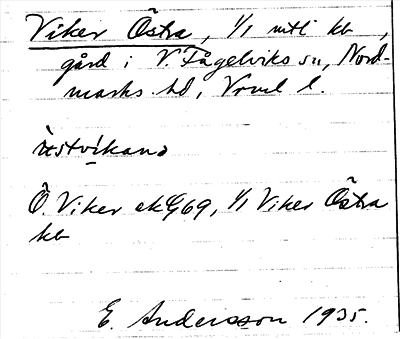 Viker Östra, 1/1 mtl kb,
gård i V. Fågelviks sn, Nord-
marks hd, Vrml l.
östvikana
Ö. Viker ekG69, 1/1 Viker Östra
kb
E. Andersson 1935.